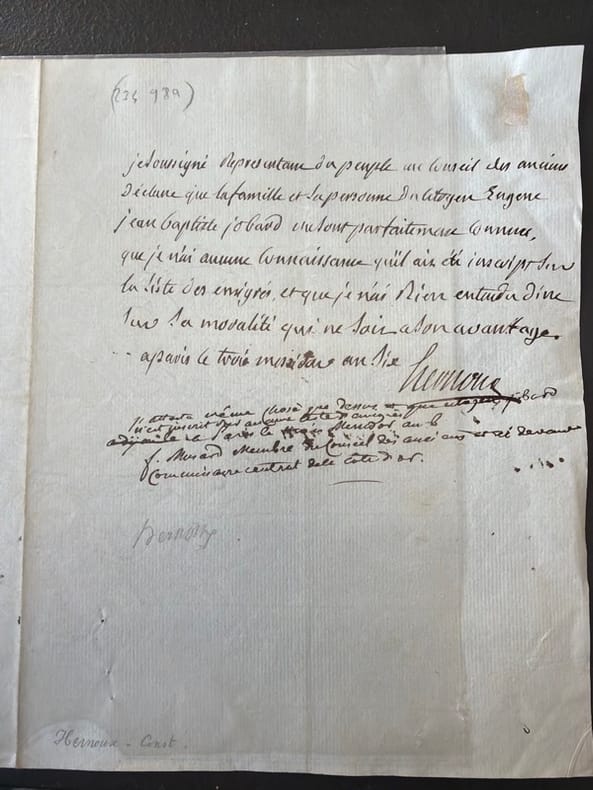 (234 989)
je soussigné Representant du peuple au Conseil des anciens
déclare que la famille et la personne du Citoyen Eugene
jean baptiste jobard me sont parfaitement connues,
que je n'ai aucune Connaissance qu'il ait été inscript sur
la Liste des emigrés, et que je n'ai Rien entendu dire
Sur Sa moralité qui ne soit a son avantage
a paris le trois messidor an Six
hernoux
J'atteste même chose que dessus et que citoyen jobard
n'est inscrit sur aucune liste d'emigrés
a Paris le trois Messidor an 6
f. Musard Membre du Conseil des anciens et ci devant
Commissaire central de la Côte d'or.
hernoux
Hernoux - Const.